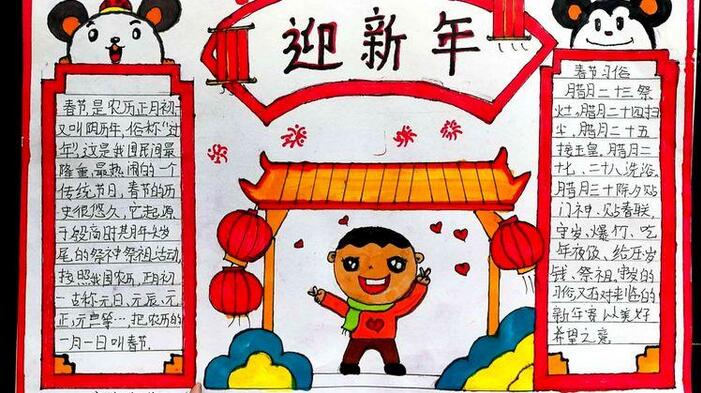 迎新年
春节是农历正月初一
又叫阴历年,俗称"过
年",这是我国民间最
隆重、最热闹的一个
传统节日,春节的历
史很悠久,它起源
于殷商时期年头岁
尾的祭神祭祖活动,
按照我国农历,正月初
一古称元日、元辰、元
正、元 等…,把农历的
一月一日叫春节.
春节习俗
腊月二十三祭
灶,腊月二十四扫
尘,腊月二十五
接玉皇,腊月二
十七、二十八洗浴,
腊月三十除夕贴
门神、贴春联,
守岁、爆竹、吃
年夜饭、给压岁
钱、祭祖。 的
习俗又 对来临的
新年寄以美好
希望之意.